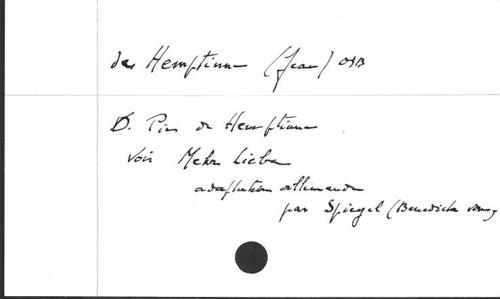 de Hemptinne (Jean) OSB
D. Pie de Hemptinne
voir Mehr Liebe
adaptation allemande
par Spiegel (Benedicta von)